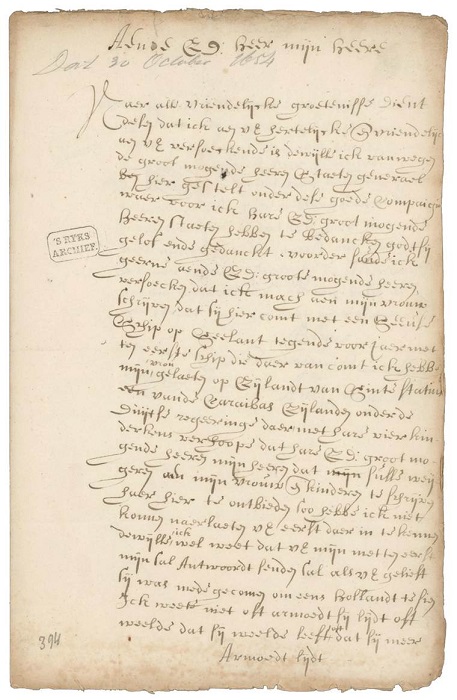 Aende Ed: heer mijn heere
Dort 30 October 1654
Naer alle vriendelijcke groetenisse dient
desen dat ick aen UE hertelijcke & vriendelijck
aen UE versoeckende is dewijlle ick vanwegen
de groot mogende heeren Staeten generael
ben hier gestelt onder dese goede Compangie
waer voor ick hare Ed: groot mogende
heeren staeten hebben te bedancken godt sij
gelof ende gedanckt. voorder soude ick
geerne aende Ed: groote mogende heeren
versoecken dat ick mach aen mijn vrouw
schrijven dat sij hier comt met een Seeuse
Schip op Seelant tegende voor jaer met
ten eerste schip die daer van comt ick hebbe
mijn vrou gelaeten op Eijlandt van Sinte Statius
een vande Carcaibas Eijlanden onder de
Duijtse regeeringe daer met hare vier kin
derkens verhoope dat hare Ed: groot mo-
gende heeren mijn heeren dat mijn sulle weij
geren om mijn vrouw & kinderen te schrijven
haer hier te ontbieden soo hebbe ick niet
konnen naerlaeten UE eerst daer in te kennen
dewijlle ick wel weet dat UE mijn metten eersten
mijn sal Antwoordt senden sal als UE gelieft
sij was mede gecomen om eens Hollandt te sien
Ick weete niet oft armoedt sij lijdt oft
weelde dat sij weelde heeft dat sij meer
Armoedt lijdt
'S RYKS
ARCHIEF
394